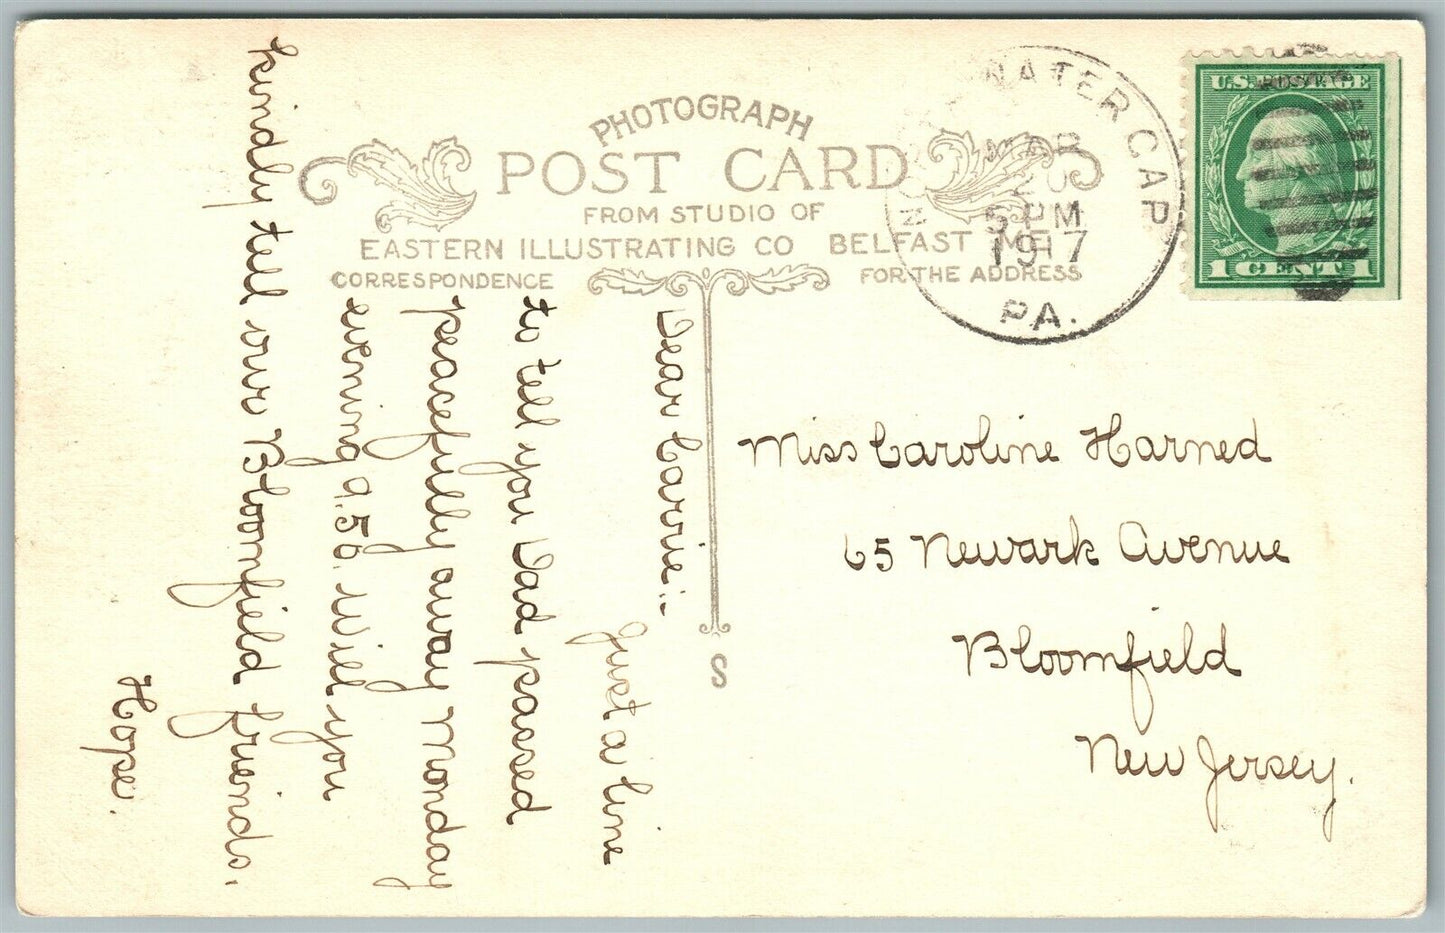 PHOTOGRAPH
POST CARD
FROM STUDIO OF
EASTERN ILLUSTRATING CO BELFAST ME
CORRESPONDENCE
FOR THE ADDRESS
WATER GAP
MAR
5 PM
1917
PA.
U.S. POSTAGE
1 CENT 1
Dear Carrie:-
Just a line
to tell you Dad passed
peacefully away Monday
evening 9.50. Will you
kindly tell our Bloomfield friends.
Hope.
S
Miss Caroline Harned
65 Newark Avenue
Bloomfield
New Jersey.